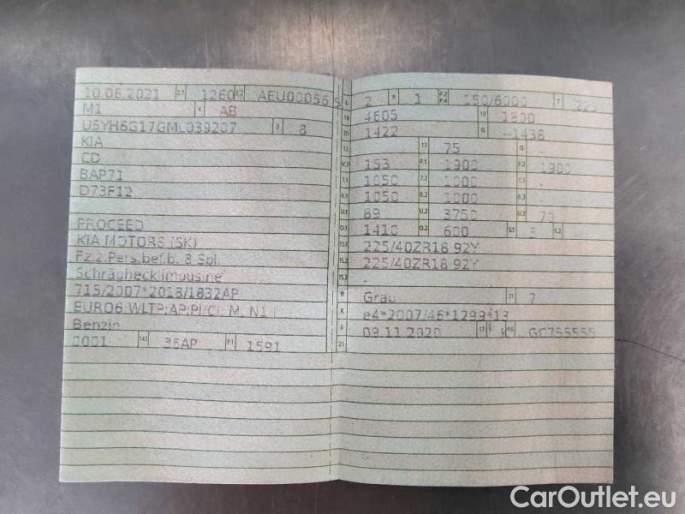 10.06.2021 1260 AEU00056 5
M1 AB
U5YH6G17GML039207 8
KIA
CD
BAP71
D73F12
PROCEED
KIA MOTORS (SK)
Fz.z.Pers.bef.b. 8 Spl.
Schräghecklimousine
715/2007*2018/1832AP
EURO6 WLTP
Benzin
0001 36AP 1591
2 1 150/6000 225
4605 1800
1422 -1438
75
153 1900 1900
1050 1000
1050 1000
89 3750 75
1410 600 5
225/40ZR18 92Y
225/40ZR18 92Y
Grau 7
e4*2007/46*1299*13
09.11.2020 K GC755555
CarOutlet.eu